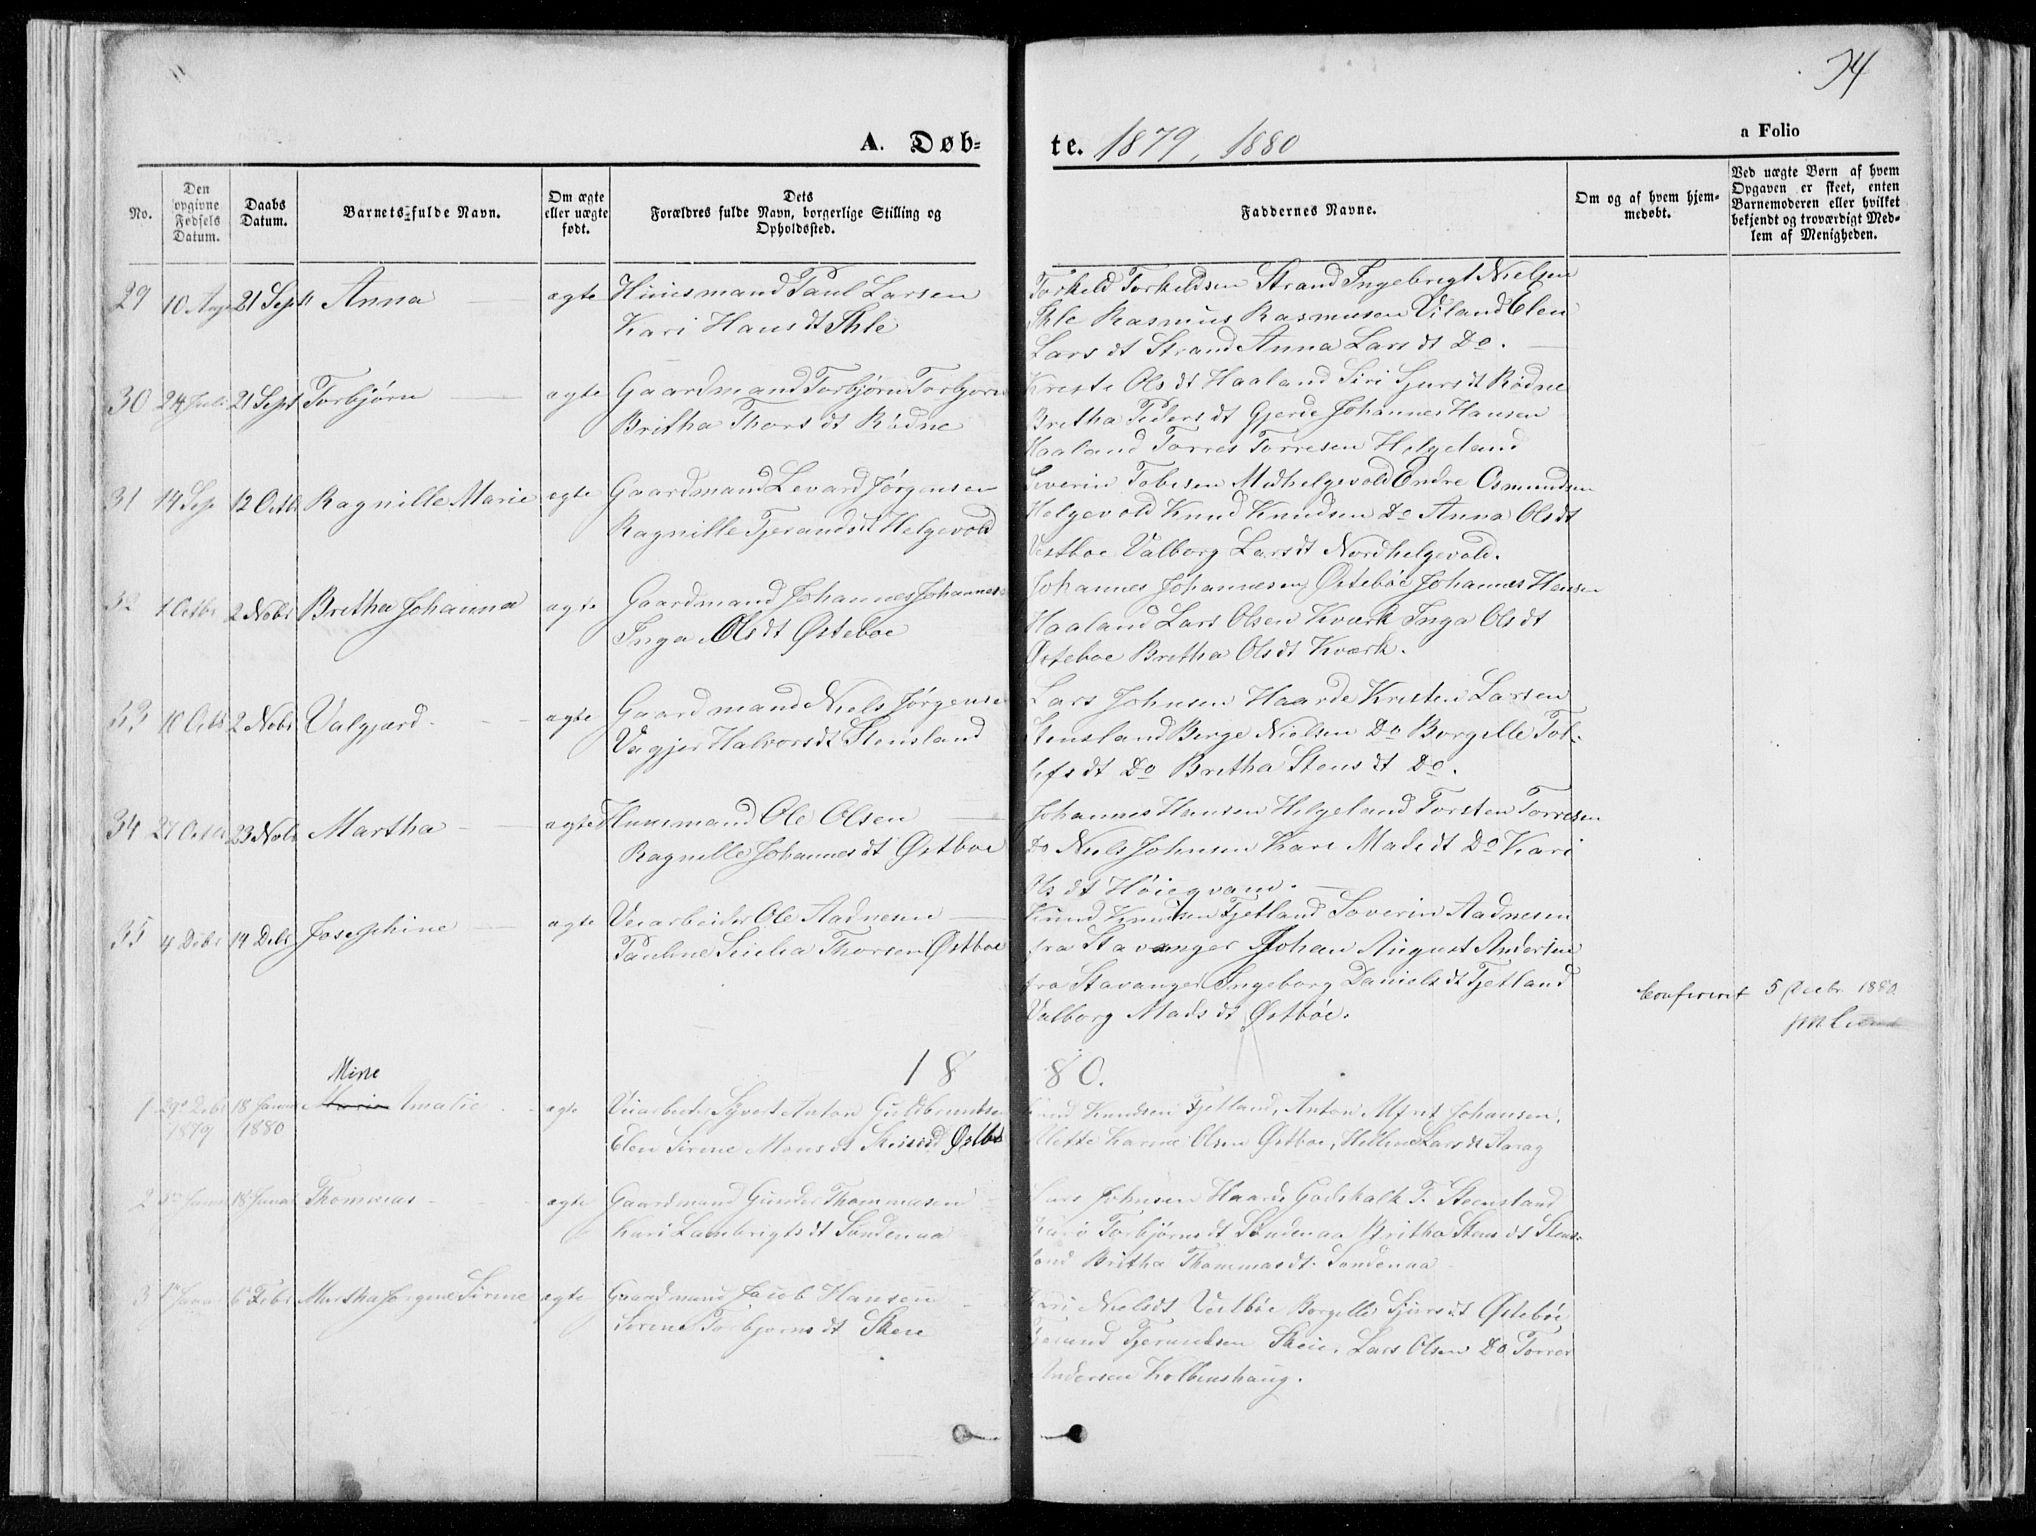 34
A. Døb-
te. 1879, 1880
a Folio
No.
Den opgivne Fødsels Datum.
Daabs Datum.
Barnets fulde Navn.
Om ægte eller uægte født.
Dets Forældres fulde Navn, borgerlige Stilling og Opholdssted.
Faddernes Navne.
Om og af hvem hjemmedøbt.
Ved uægte Børn af hvem Opgaven er skeet, enten Barnemoderen eller hvilket bekjendt og troværdigt Medlem af Menigheden.
29 10 Aug 21 Sept Anna ægte Huusmand Paul Larsen
Kari Hansdt Ihle
Torkild Torkildsen Strand Ingebrigt Nielsen
Ihle Rasmus Rasmusen Viland Elen
Larsdt Strand Anna Larsdt Do.
30 24 Juli 21 Sept Torbjørn ægte Gaardmand Torbjørn Torbjørn
Britha Thorsdt Rødne
Kreste Olsdt Haaland Siri Sjursdt Rødne
Britha Pedersdt Gjerde Johannes Hansen
Haaland Torres Torresen Helgeland
31 14 Sep 12 Octb Ragnille Marie ægte Gaardmand Levard Jørgensen
Ragnille Tjerandsdt Helgevold
Severin Tobisen Midhelgevold Endre Osmundsen
Helgevold Knud Knudsen Do Anna Olsdt
Vestboe Valborg Larsdt Nordhelgevold.
32 1 Octbr 2 Nobr Britha Johanna ægte Gaardmand Johannes Johannes
Inga Olsdt Østeboe
Johannes Johannesen Østebøe Johannes Hansen
Haaland Lars Olsen Kværk Inga Olsdt
Østeboe Britha Olsdt Kværk.
33 10 Octb 2 Nobr Valgjærd ægte Gaardmand Niels Jørgense
Vagjer Halvorsdt Stensland
Lars Johnsen Haarde Kristen Larsen
Stensland Berge Nielsen Do Borgille Tol-
lefsdt Do Britha Stensdt Do.
34 27 Octb 23 Nob Martha ægte Huusmand Ole Olsen
Ragnille Johannesdt Østboe
Johannes Hansen Helgeland Torsten Torresen
Do Niels Johnsen Kari Madsdt Do Kari
Olsdt Høiegvam.
35 4 Debr 14 Debr Josephine ægte Veiarbeider Ole Aadnesen
Pauline Sicilia Thorsen Østboe
Knud Knudsen Tjetland Soverin Aadnesen
fra Stavanger Johan August Andersen
fra Stavanger Ingeborg Danielsdt Tjetland
Valborg Madsdt Østbøe.
Conferert 5 Decbr 1880
1880.
Mine
1 29de Debr 1879 18 Januar 1880 Marie Amalie ægte Veiarbeider Syvert Anton Guldbrandsen
Elen Sirine Monsdt Østbø
Knud Knudsen Tjetland, Anton Alfret Johansen,
Mette Karine Olsen Østboe, Helline Larsdt Aarag
2 18 Januar Thommas ægte Gaardmand Gunder Thommasen
Kari Lambrigtsdt Søndenaa
Lars Johnsen Haarde Godskalk T. Steensland
Kari Torbjørnsdt Søndenaa Britha Stensdt Stens-
land Britha Thommasdt Søndenaa
3 6te Febr Martha Jorgine Sirine ægte Gaardmand Jacob Hansen
Sirine Torbjørnsdt Skeie
Kari Nielsdt Vestbøe Borgille Sjursdt Østebøe
Tjerand Tjerandsen Skeie, Lars Olsen Do Torres
Andersen Kolbenshaug.